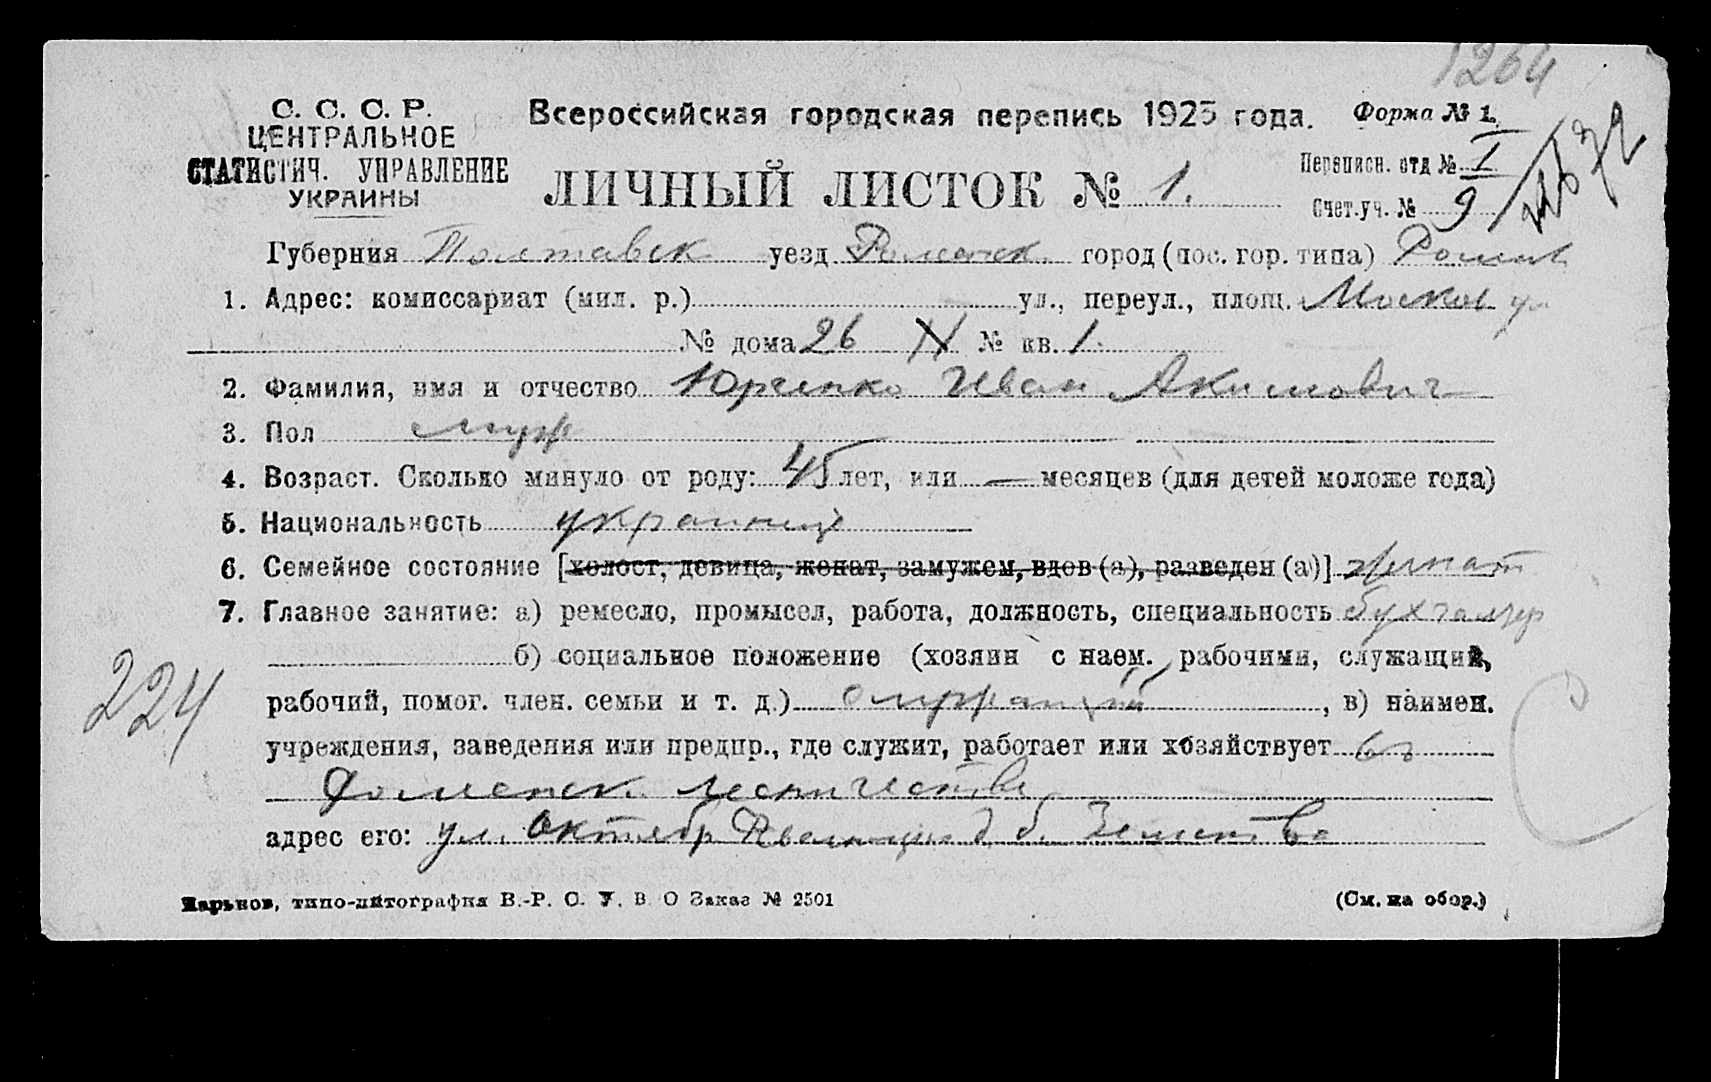 1264
С. С. С. Р.
ЦЕНТРАЛЬНОЕ
СТАТИСТИЧ. УПРАВЛЕНИЕ
УКРАИНЫ
Всероссийская городская перепись 1923 года.
Форма № 1.
ЛИЧНЫЙ ЛИСТОК № 1.
Переписн. отд № I
Счет.уч. № 9
Губерния Полтавск уезд Роменск. город (пос. гор. типа) Ромны
1. Адрес: комиссариат (мил. р.) ул., переул., площ. Москов ул
№ дома 26 № кв. 1.
2. Фамилия, имя и отчество Юрченко Иван Акимович
3. Пол муж
4. Возраст. Сколько минуло от роду: 45 лет, или — месяцев (для детей моложе года)
5. Национальность украинец
6. Семейное состояние [холост, девица, женат, замужем, вдов (а), разведен (а)] женат
7. Главное занятие: а) ремесло, промысел, работа, должность, специальность бухгалтер
б) социальное положение (хозяин с наем. рабочими, служащий,
рабочий, помог. член. семьи и т. д.) служащий, в) наимен.
учреждения, заведения или предпр., где служит, работает или хозяйствует въ
Роменск. лесничестве
адрес его: ул. Октябр Революции д б. Земства
224
Харьков, типо-литография В.-Р. С. У. В О Заказ № 2501
(См. на обор.)